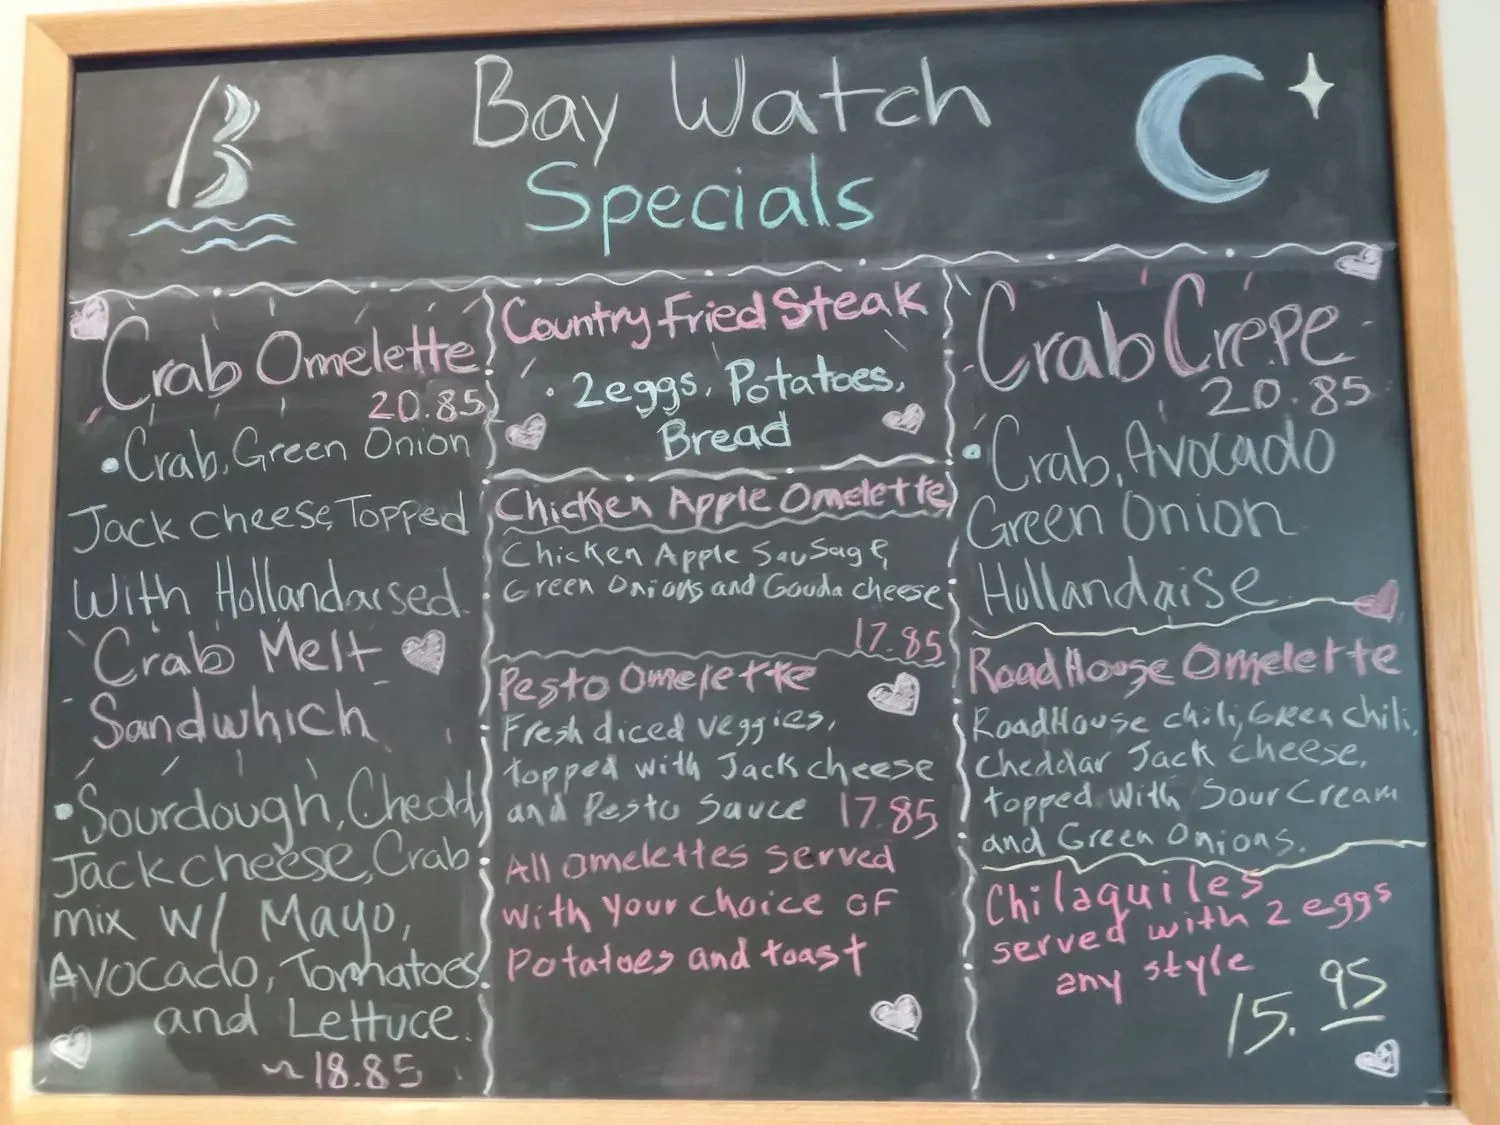 Bay Watch
Specials
Crab Omelette
20.85
• Crab, Green Onion
Jack cheese, Topped
With Hollandaised
Crab Melt
Sandwhich
• Sourdough, Chedd
Jack cheese, Crab
mix w/ Mayo,
Avocado, Tomatoes
and Lettuce.
~18.85
Country Fried Steak
• 2 eggs, Potatoes,
Bread
Chicken Apple Omelette
Chicken Apple Sausage,
Green Onions and Gouda cheese
17.85
Pesto Omelette
Fresh diced veggies,
topped with Jack cheese
and Pesto Sauce 17.85
All omelettes served
with your choice of
Potatoes and toast
Crab Crepe
20.85
• Crab, Avocado
Green Onion
Hollandaise
RoadHouse Omelette
RoadHouse chili, Green chili,
Cheddar Jack cheese,
topped with Sour Cream
and Green Onions.
Chilaquiles
served with 2 eggs
any style
15.95